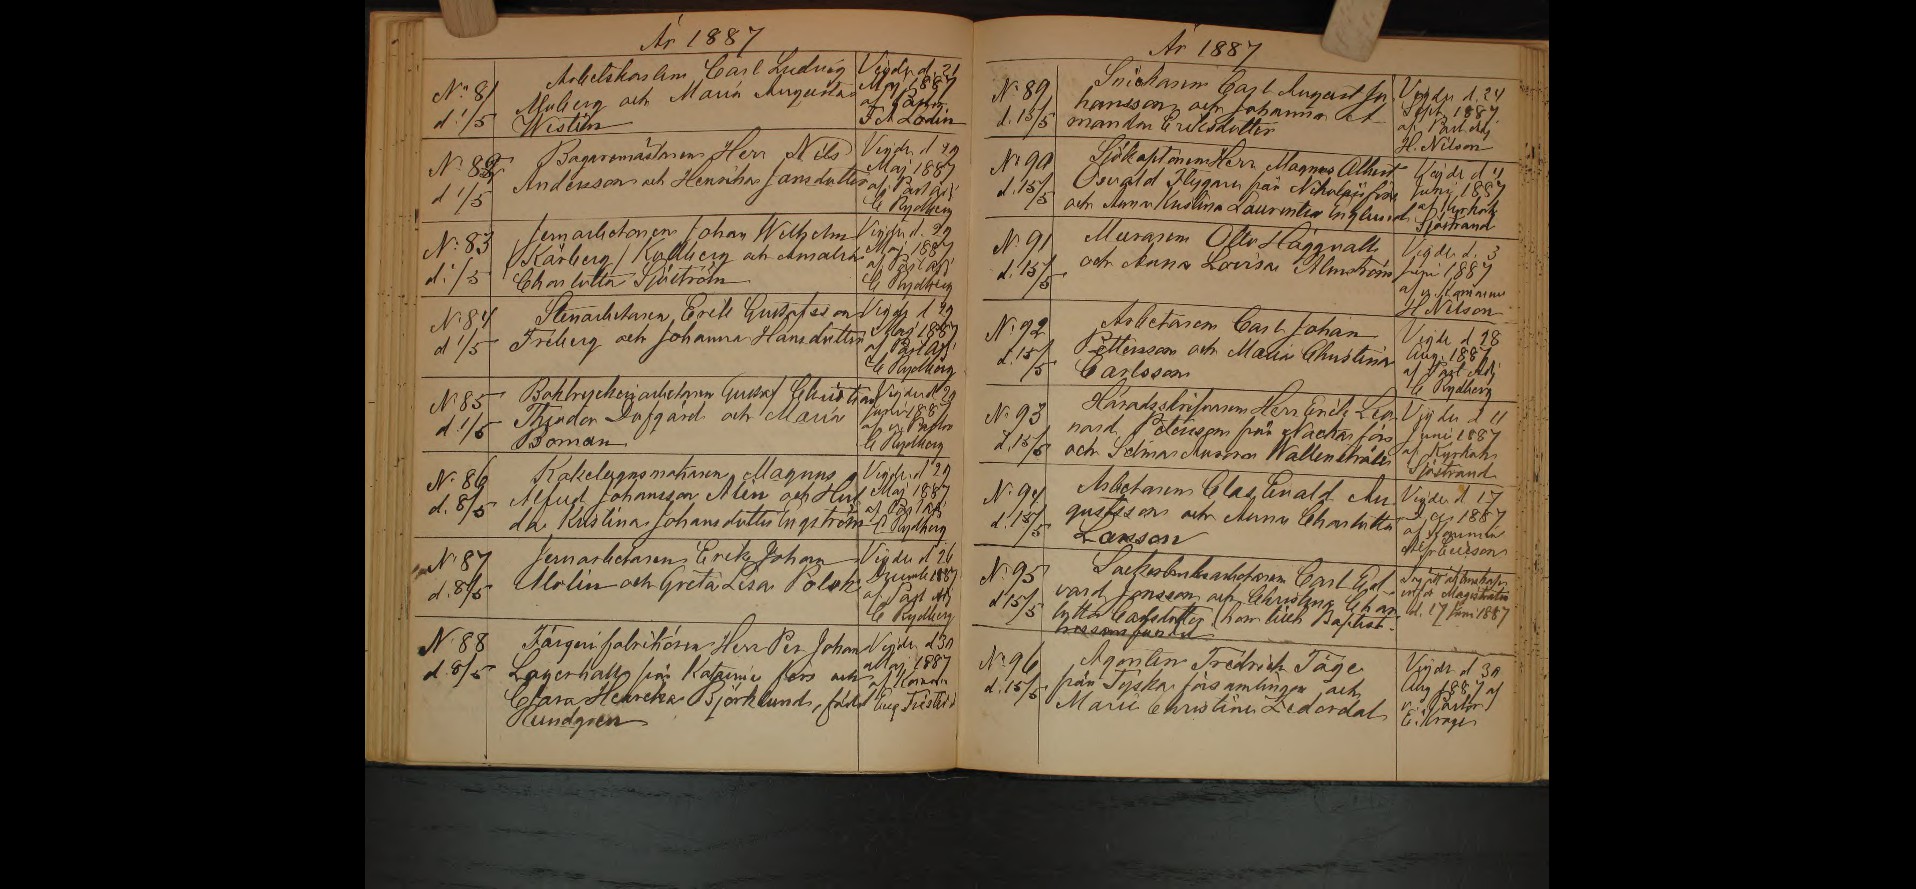 År 1887
N: 81 Arbetskarlen Carl Ludvig Vigde d. 21
d. 1/5 Moberg och Maria Augusta Maj 1887
Wistin af
F A Lodin
N: 82 Bagaremästaren Herr Nils Vigde d 29
d 1/5 Andersson och Henrika Jansdotter Maj 1887
af Past adj
C Rydberg
N: 83 Jernarbetaren Johan Wilhelm Vigde d. 29
d. 1/5 Kärberg / Kullberg och Amalia Maj 1887
Charlotta Sjöström af Past adj
C Rydberg
N: 84 Stenarbetaren Erik Gustafsson Vigde d 29
d 1/5 Friberg och Johanna Hansdotter Maj 1887
af Past adj
C Rydberg
N: 85 Boktryckeriarbetaren Gustaf Christian Vigde d 29
d. 1/5 Theodor Dafgård och Maria 1887
Boman af v. Pastor
C Rydberg
N: 86 Kakelugnsmakaren Magnus Vigde d 29
d. 8/5 Alfred Johansson Alin och Hul Maj 1887
da Kristina Johansdotter Engström af Past adj
C Rydberg
N: 87 Jernarbetaren Erik Johan Vigde d 26
d. 8/5 Molin och Greta Lisa Polsk Decemb 1887
af Past Adj
C Rydberg
N: 88 Färgerifabrikören Herr Per Johan Vigde d 30
d. 8/5 Lagerhall från Katarina förs och Maj 1887
Clara Henrika Björklund, född af
Lundgren
År 1887
N: 89 Snickaren Carl August Jo Vigde d. 24
d. 15/5 hansson och Johanna A Sept 1887
manda Eriksdotter af Past Adj
H. Nilson
N: 90 Sjökaptenen Herr Magnus Albert Vigde d 11
d. 15/5 Osvald Flygare från Nikolai förs Juni 1887
och Anna Kristina Laurentia Englund af Kyrkoh
Sjöstrand
N: 91 Muraren Otto Häggvall Vigde d. 3
d. 15/5 och Anna Lovisa Almström Juni 1887
af v.
H Nilson
N: 92 Arbetaren Carl Johan Vigde d 28
d. 15/5 Pettersson och Maria Christina Aug. 1887
Carlsson af Past Adj
C Rydberg
N: 93 Häradsskrifvaren Herr Erik Leo Vigde d 11
d. 15/5 nard Peterson från Nacka förs Juni 1887
och Selma Aurora Wallenstråle af Kyrkoh
Sjöstrand
N: 94 Arbetaren Clas Evald Au Vigde d 17
d. 15/5 gustsson och Anna Charlotta 1887
Larsson af
Ericsson
N: 95 Sockerbruksarbetaren Carl Ed
d 15/5 vard Jonsson och Christina Char inför Magistraten
lotta Carlsdotter (hon till Baptist d. 17 Juni 1887
N: 96 Agenten Fredrich Täge Vigde d 30
d. 15/5 från Tyska församlingen och Aug 1887 af
Maria Christina Cederdal v. Pastor